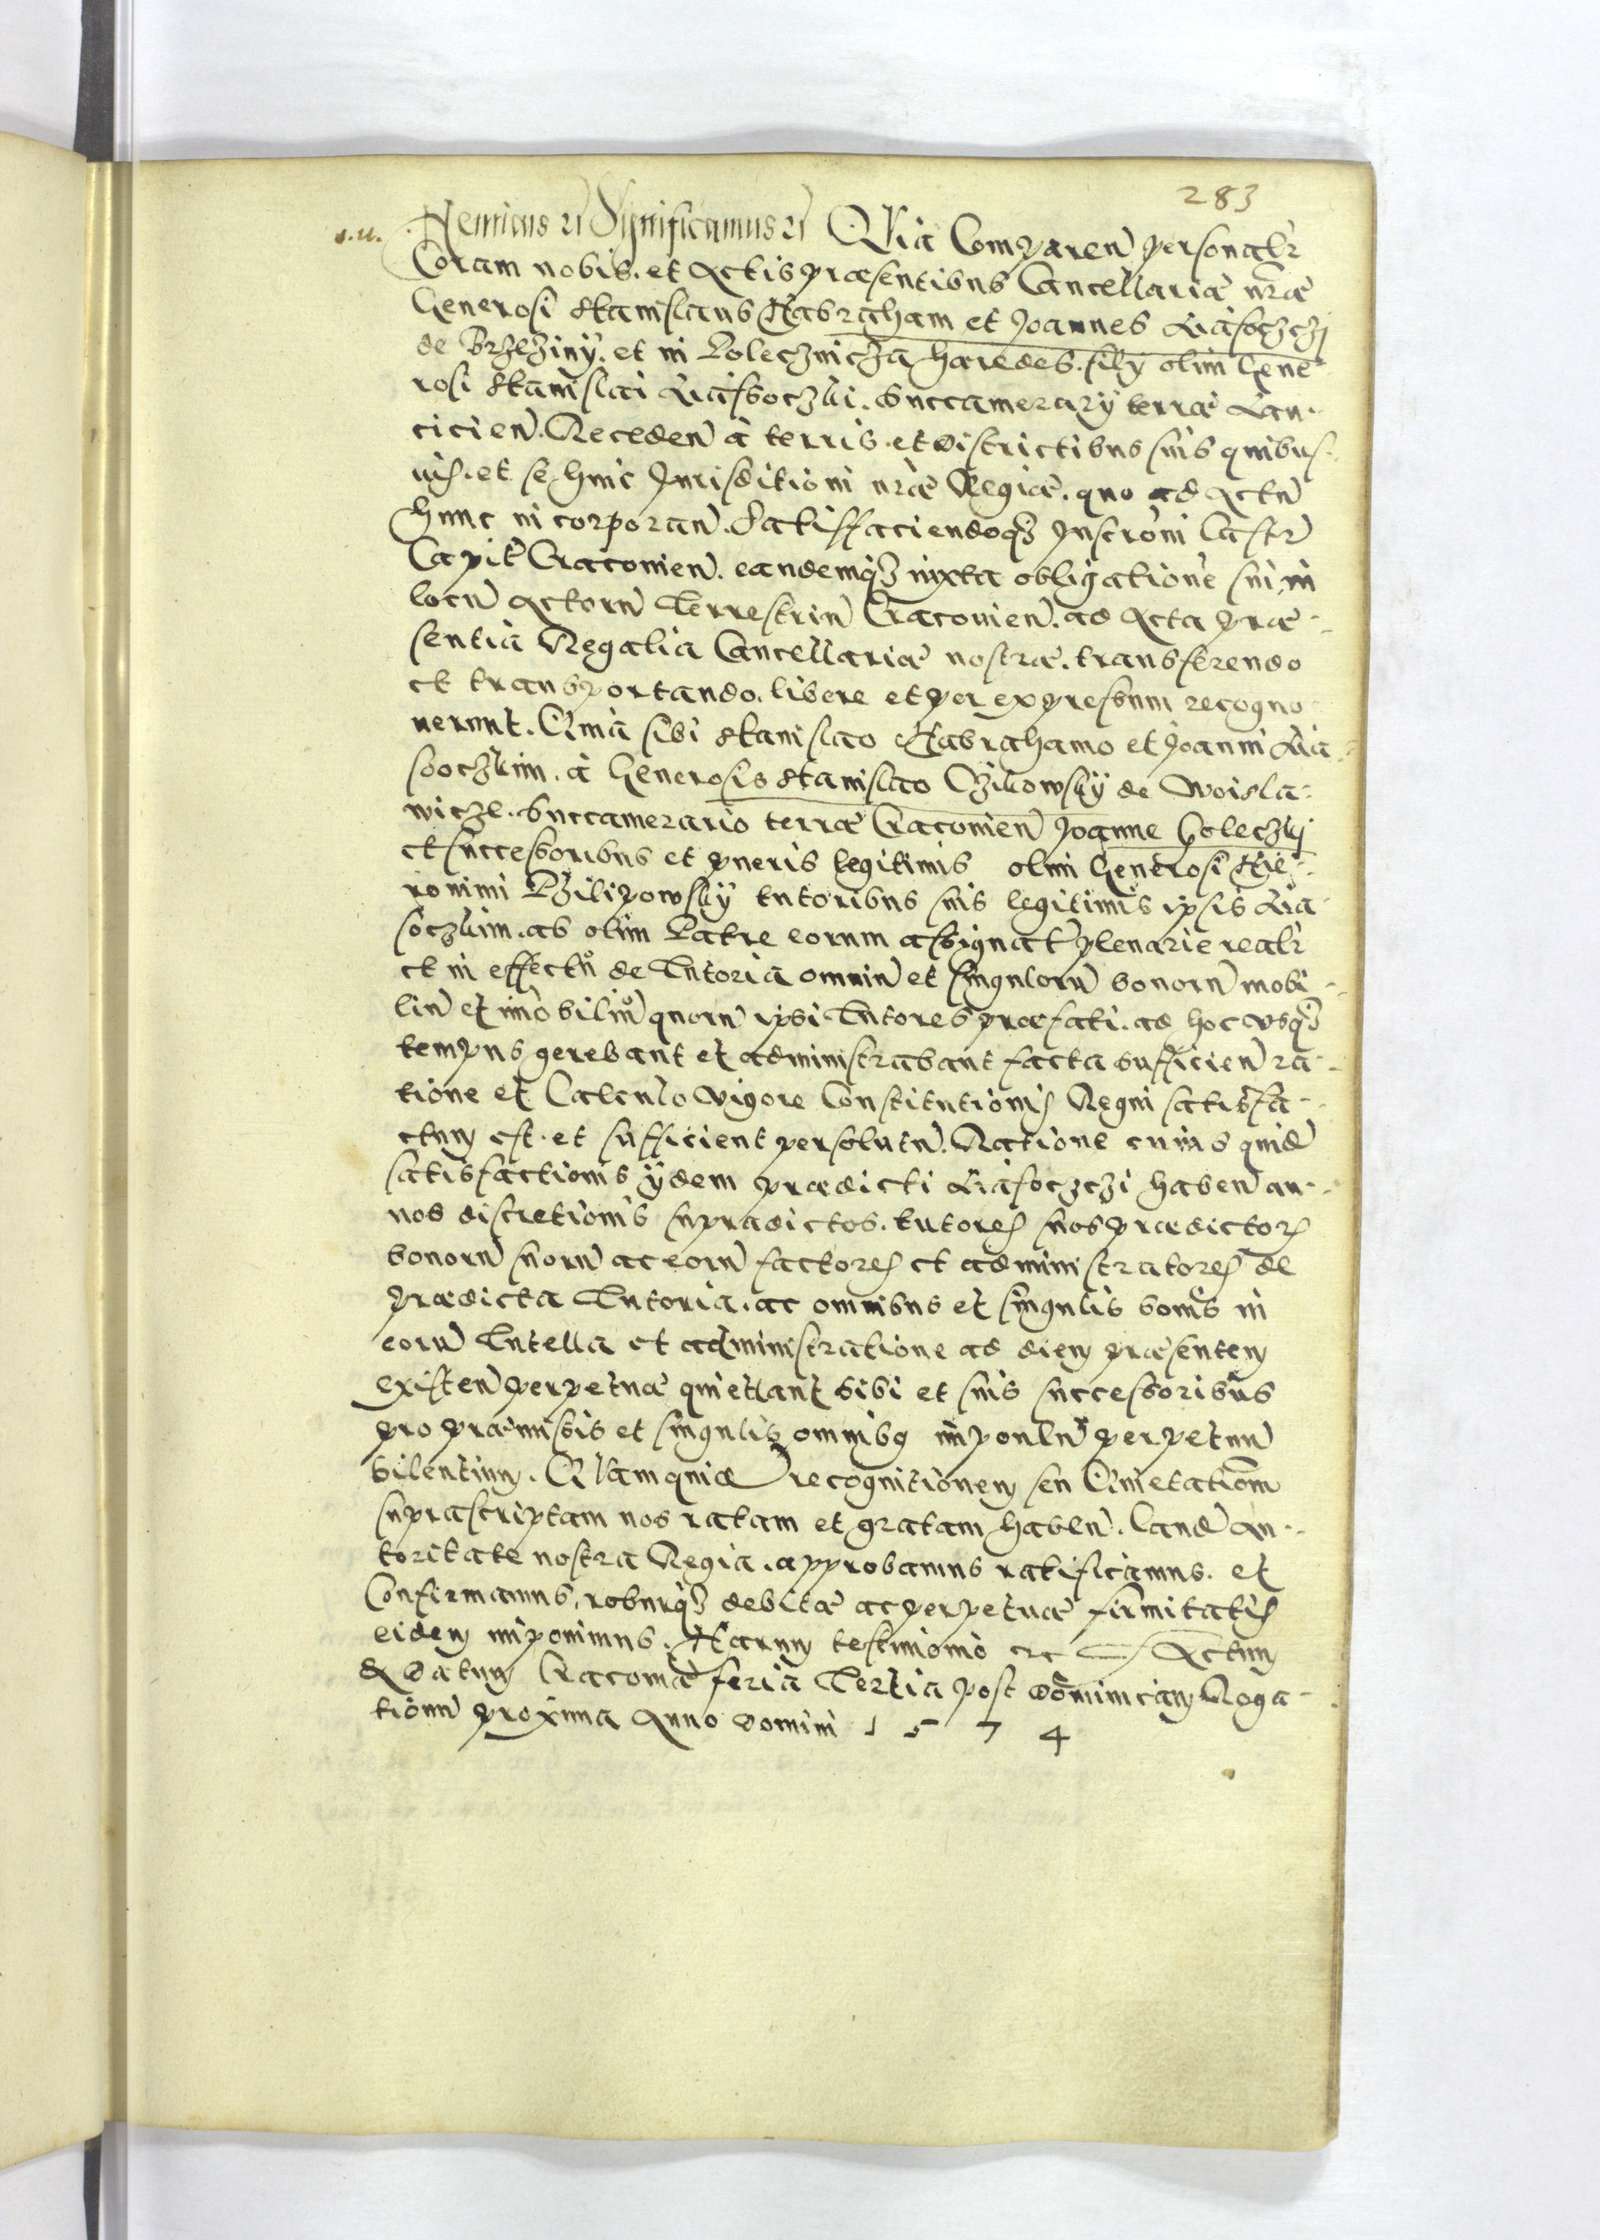 283
Henricus etc Significamus etc Quia Comparen personalr
Coram nobis. et Actis præsentibus Cancellariæ nræ
Generosi Stanislaus Habraham et Joannes Liasoczczi
de Brzeziny. et in hæredes. filÿ olim Gene
rosi Stanislai Liassoczki. Succamerarÿ terræ Lan-
cicien. Receden à terris. et districtibus suis quibus-
uis. et se huic Jurisditioni nræ Regiæ. quo ad Actu
hunc incorporan. Satisfaciendoq Inscroni Castr
Capit Cracouien. eandemq iuxta obligatione sui in
locu Actoru Terrestriu Cracouien. ad Acta præ-
sentia Regalia Cancellariæ nostræ. transferendo
et transportando. libere et per expressum recogno
uerunt. Quia sibi Stanislao Habrahamo et Joanni Lia-
soczkim. à Generosis Stanislao Czikowsky de Woisla-
wicze. Succamerario terræ Cracouien Joanne
et successoribus et pueris legitimis olim Generosi Hie-
ronimi Philipowsky tutoribus suis legitimis ipsis Lia-
soczkim. ab olim Patre eorum assignat plenarie realr
et in effectu de Tutoria omniu et singuloru bonoru mobi-
liu et imobiliu quoru ipsi Tutores præfati. ad hoc usq
tempus gerebant et administrabant facta sufficien ra-
tione et Calculo vigore Constitutionis Regni satisfa-
ctum est. et sufficient persolutu. Ratione cuius quid
satisfactionis ÿdem prædicti Liasoczczi haben an-
nos discretionis supradictos. tutores suos prædictos
bonoru suoru ac eoru factores et administratores de
prædicta Tutoria. ac omnibus et singulis bonis in
eoru Tutella et administratione ad diem præsentem
existen perpetuæ quietant sibi et suis successoribus
pro præmissis et singulis omnibq imponen perpetuu
silentium. Quam quid recognitionem seu Quietatiom
suprascriptam nos ratam et gratam haben. Eand Au-
toritate nostra Regia. approbamus ratificamus. et
Confirmamus, roburq debitæ ac perpetuæ firmitatis
eidem imponimus. Harum testimonio etc Actum
& Datum Cracouiæ feria Tertia post dominicam Roga-
tionu proxima Anno Domini 1574